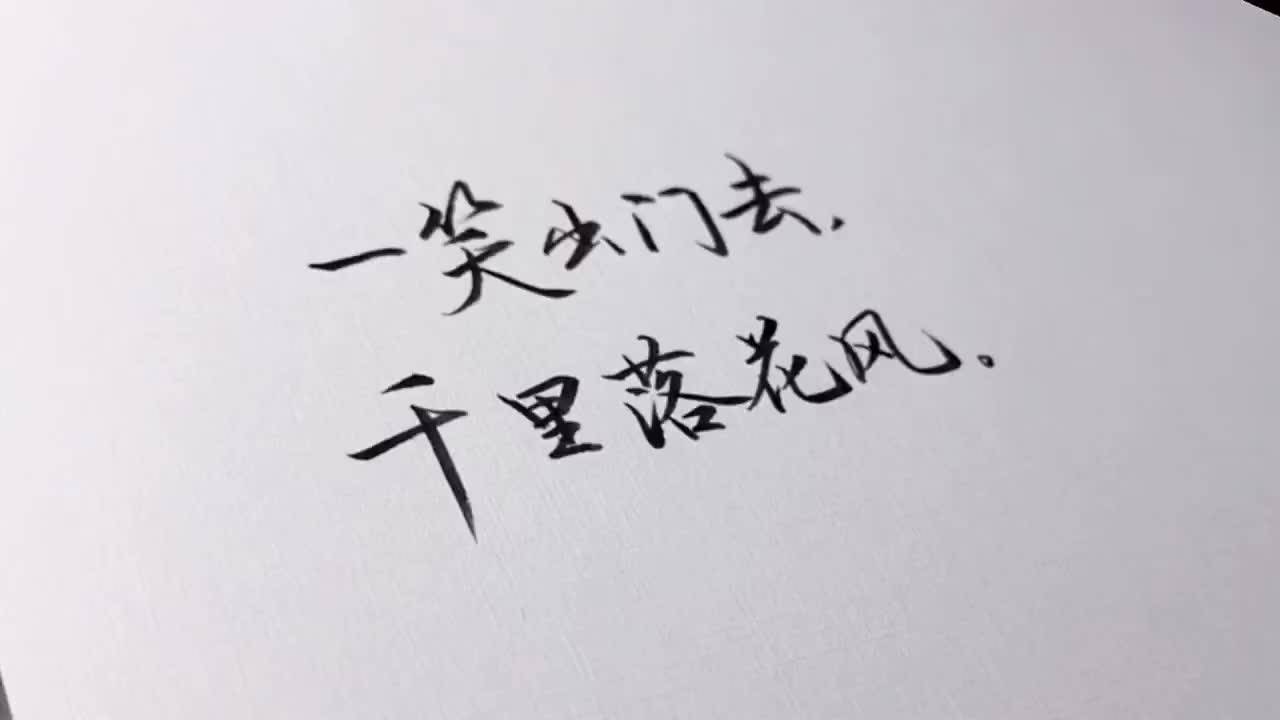 一笑出门去,
千里落花风.